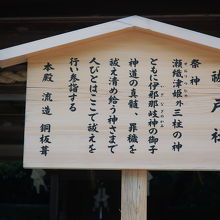 祓戸社
祭神
瀬織津姫外三柱の神
ともに伊邪那岐神の御子
神道の真髄、罪穢を
祓え清め給う神さまで
人びとはここで祓えを
行い参詣する
本殿 流造 銅板葺